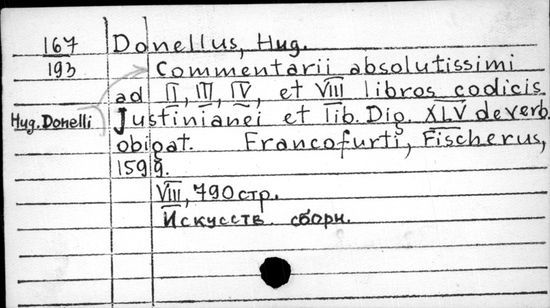 167
193
Donellus, Hug.
Commentarii absolutissimi
ad II, III, IV, et VIII libros codicis
Hug. Donelli
Justinianei et lib. Dig. XLV de verb.
obigat. Francofurti, Fischerus,
1599.
VIII, 790 стр.
Искусств сборн.